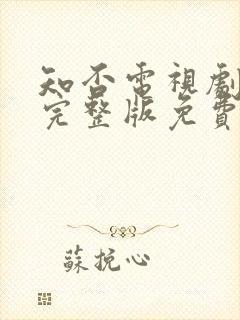 知否電視劇
完整版免費
蘇挽心